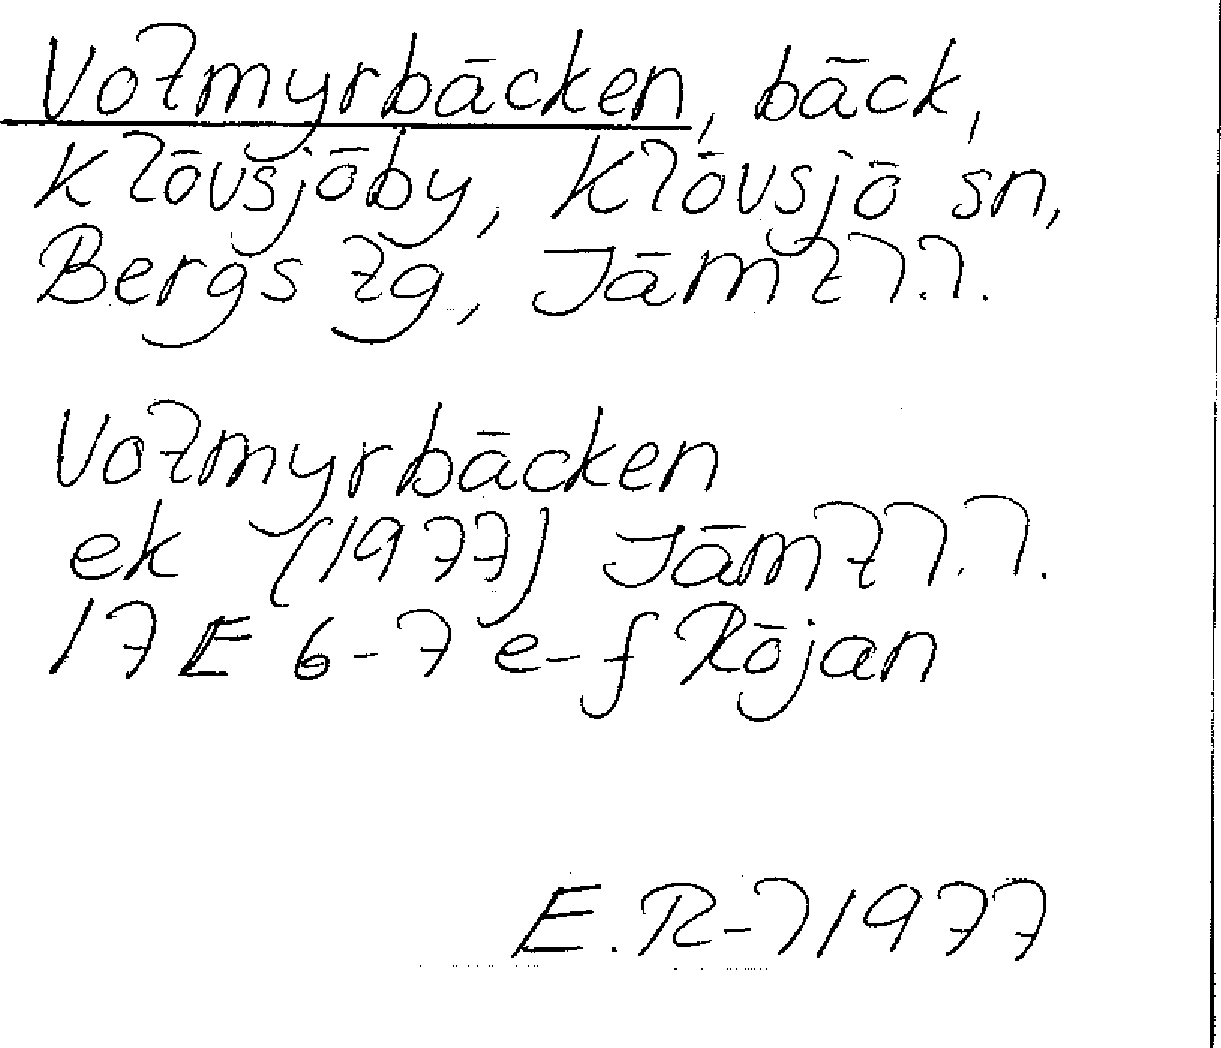 Votmyrbäcken, bäck,
Klövsjöby, Klövsjö sn,
Bergs tg, Jämtl.l.
Votmyrbäcken
ek (1977) Jämtl.l.
17E 6-7 e-f Röjan
E.R-l 1977